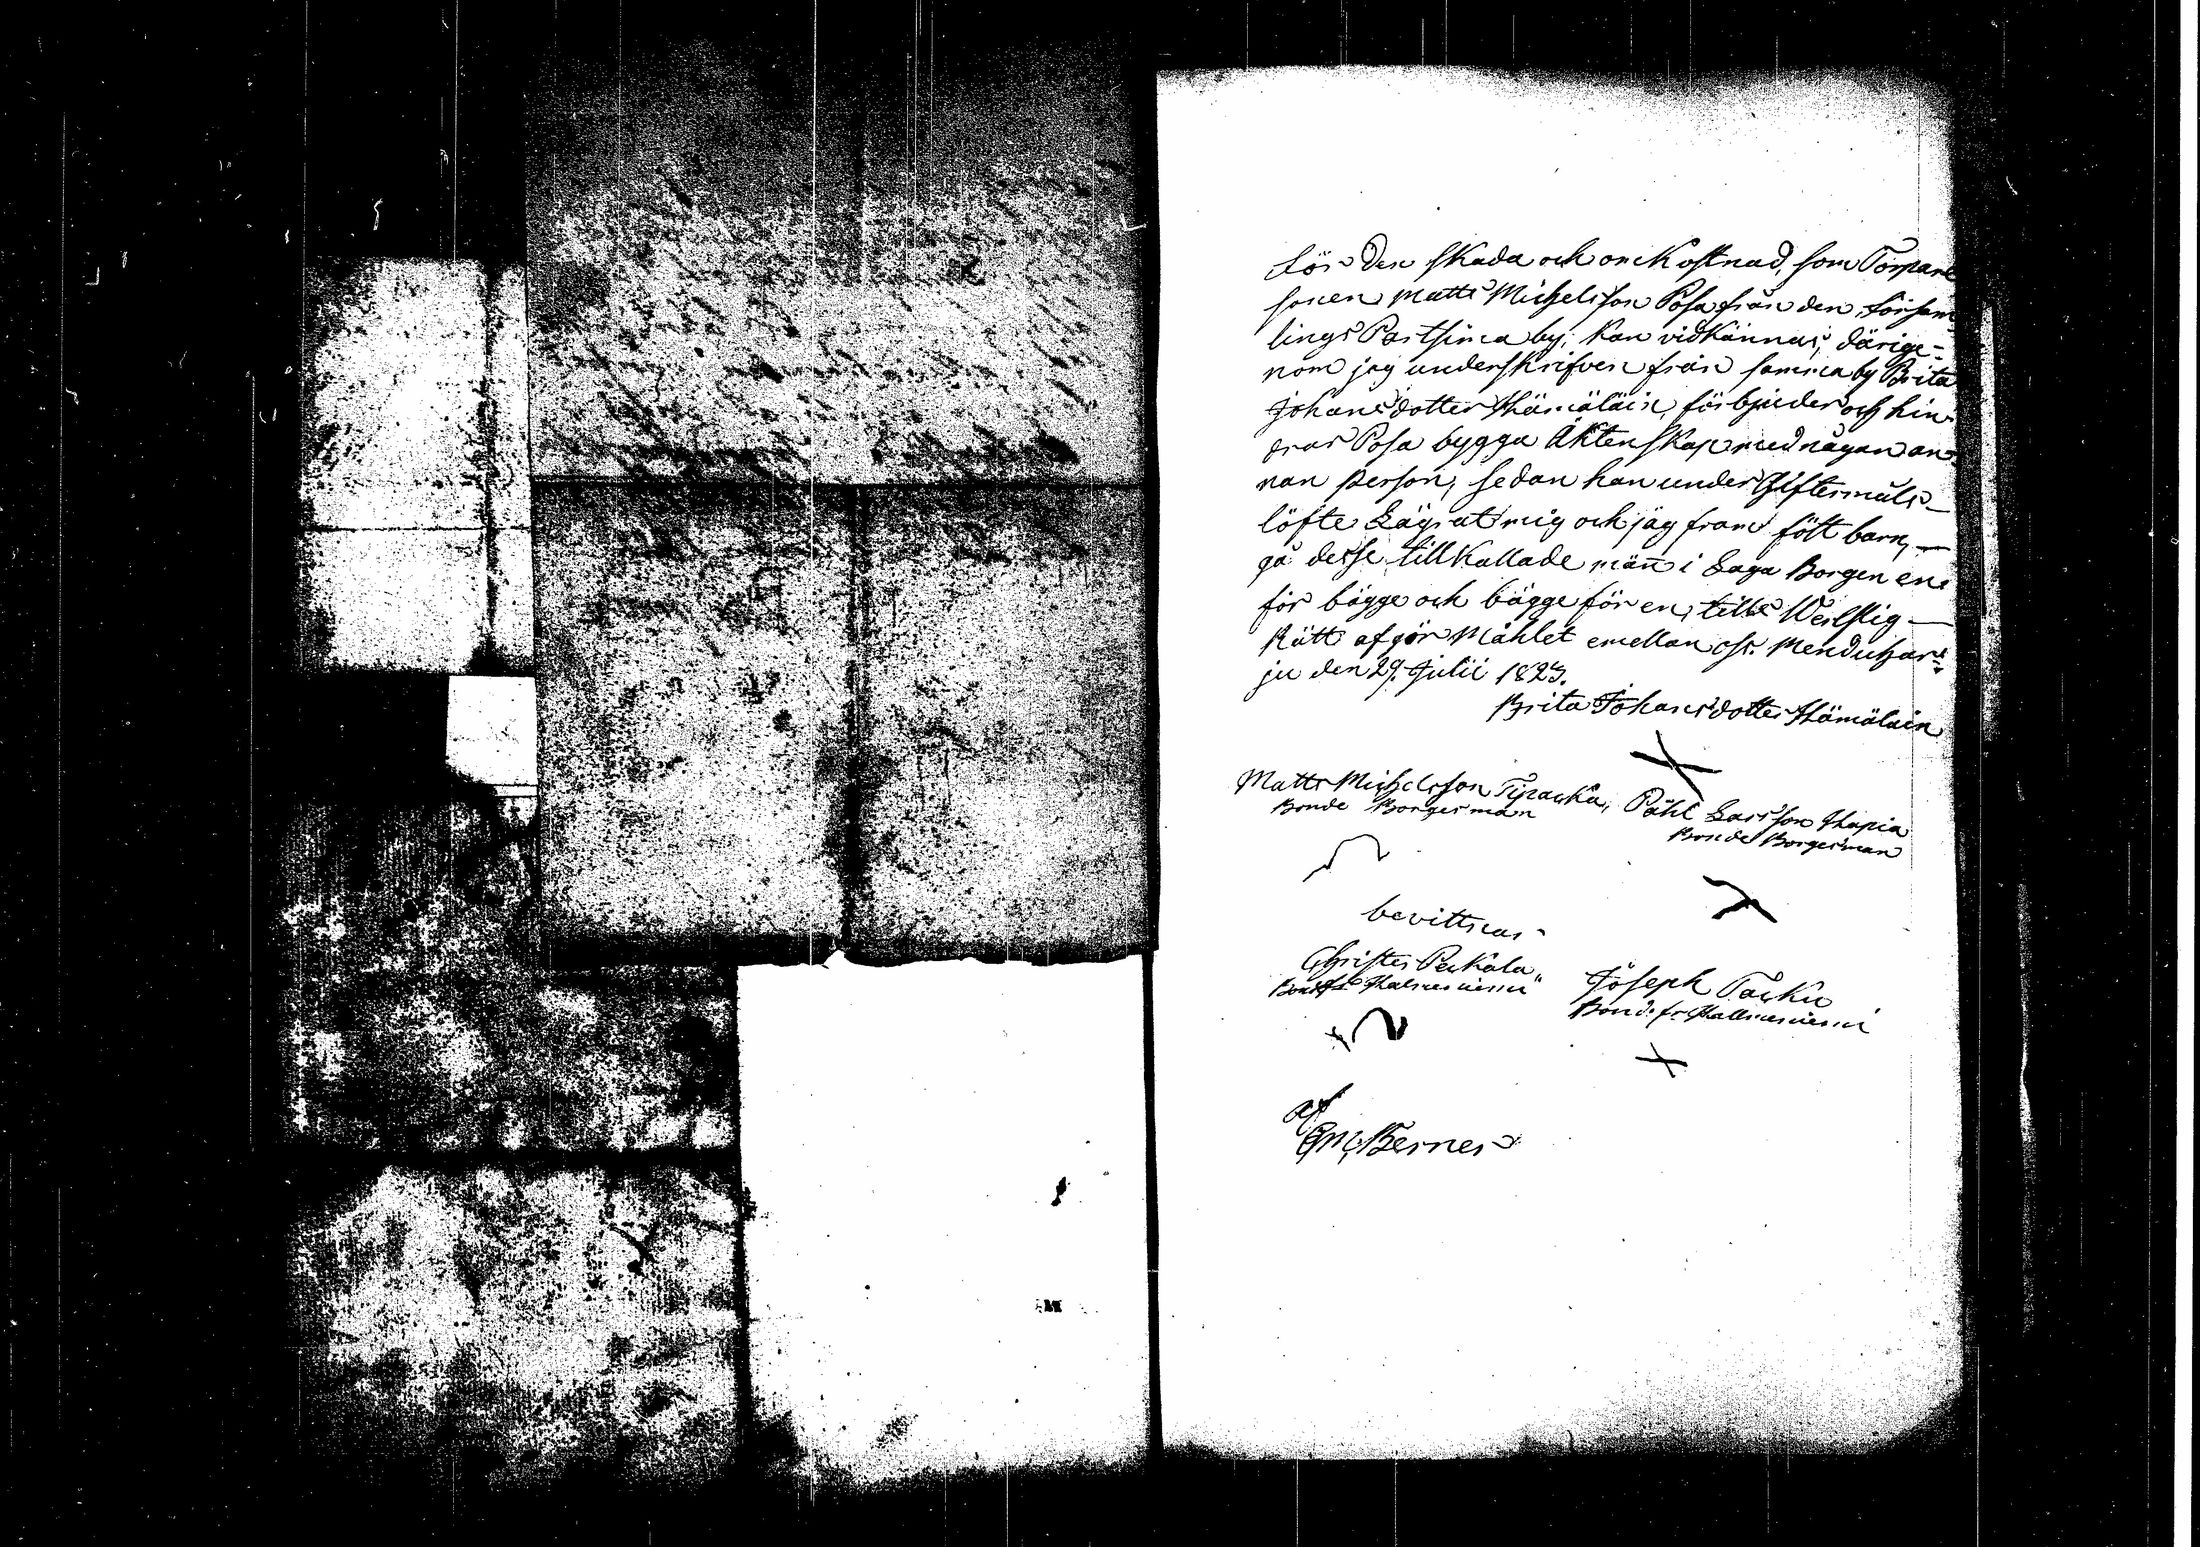 för Den skada och onckostnad, som Torpare
sonen Matts Michelsson Posa från den försam
lings Partsima by, kan vidkännas, därige=
nom jag underskrifven från samma by Brita
Johansdotter Hämäläin, förbjuder och hin
drar Posa bygga Äktenskap med någan an
nan person, sedan han under Giftermåls
löfte Lägrat mig och jag fram fött barn, —
gå desse tillkallade män i Laga Borgen en
för bägge och bägge för en, tills Werllig —
Rätt afgör Måhlet emellan oss. Menduhar=
ju den 29. Julii 1823.
Brita Johansdotter Hämäläin
Matts Michelsson
Bonde Borgesman
Påhl Larsson Hapia
Bonde Borgesman
bevittnas
Christer Peukala
Joseph
Bond. fr.
af
Berner